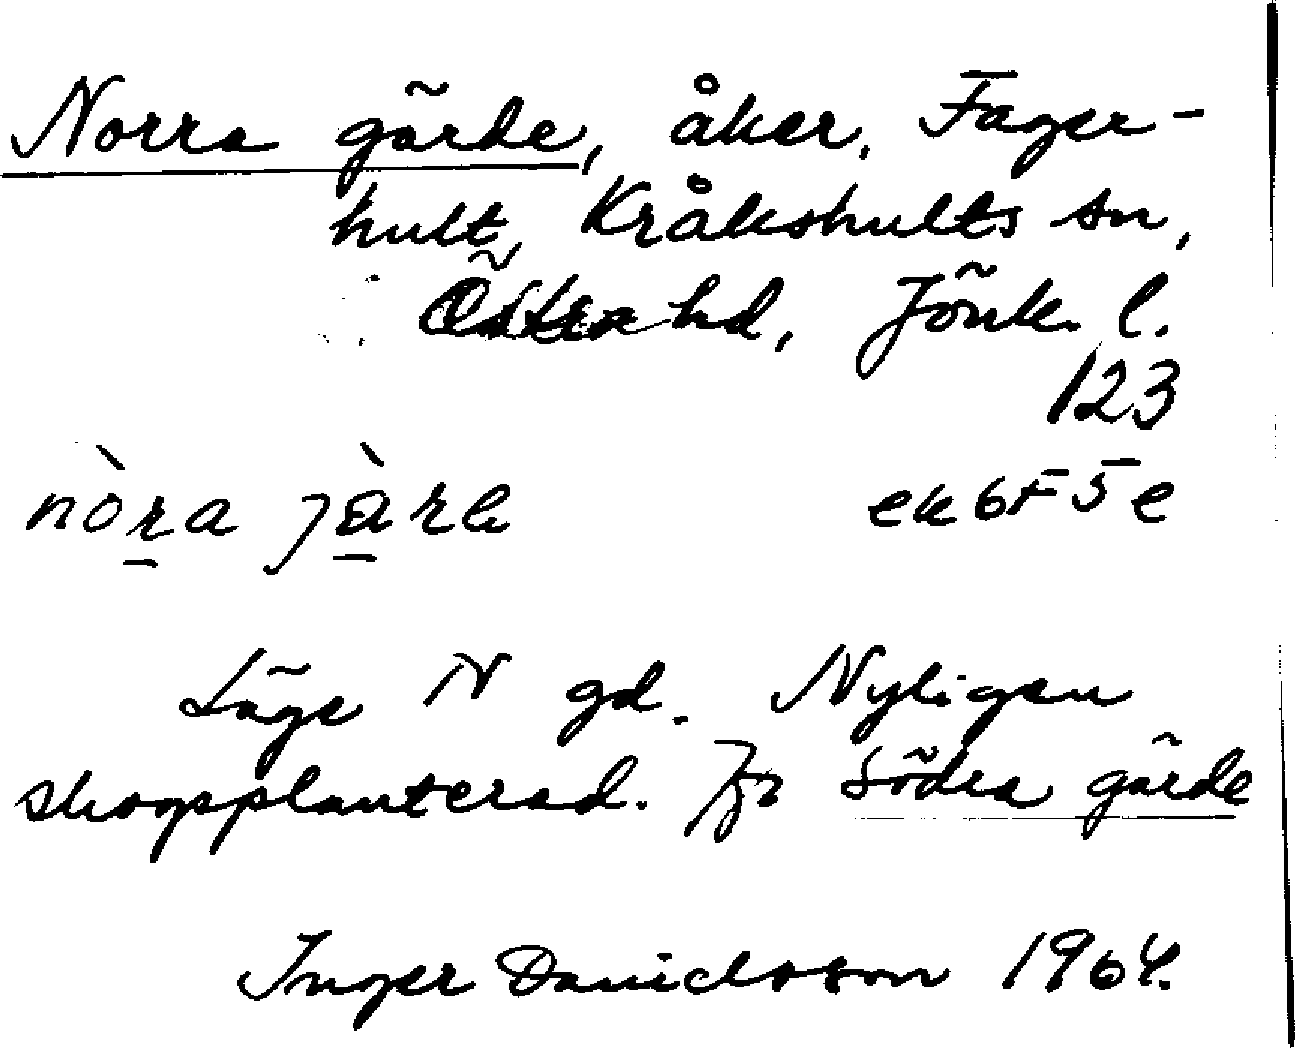 Norra gärde, åker, Fager-
hult, Kråkshults sn,
Östra hd, Jönk. l.
123
nòra jàre
ek 6F 5e
Läge N gd. Nyligen
skogsplanterad. Jfr Södra gärde
Inger Danielsson 1964.